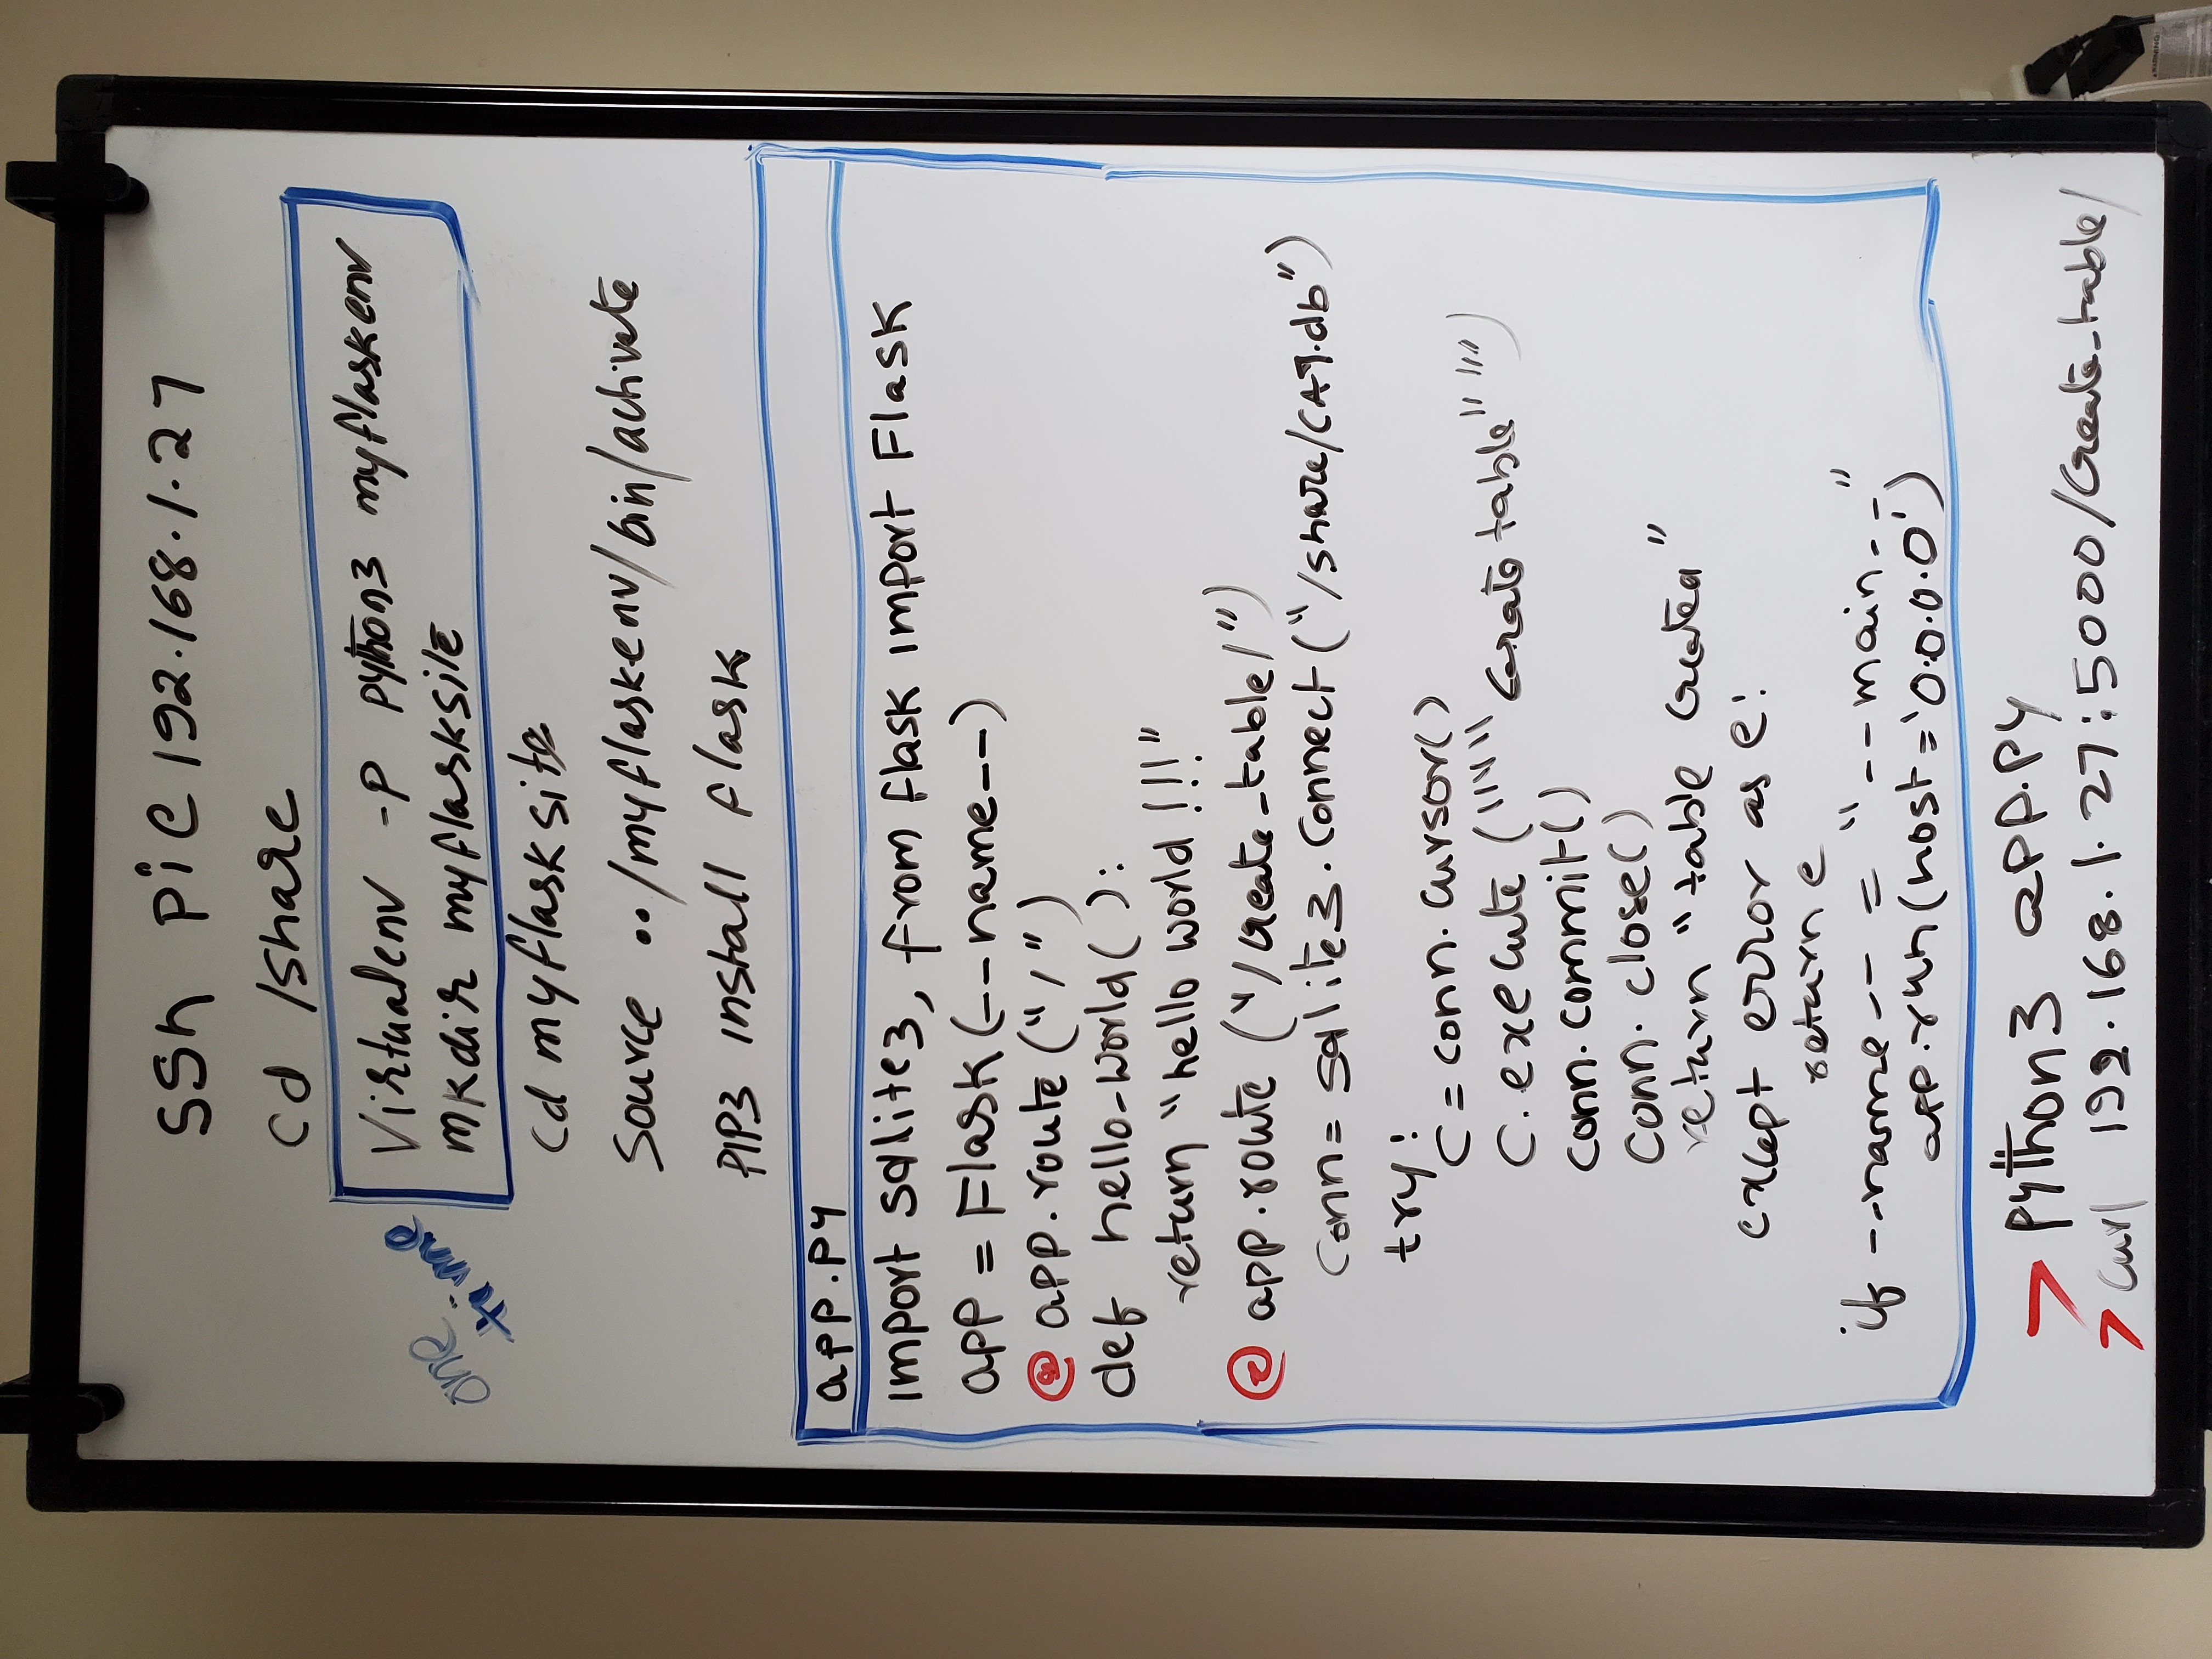 ssh pi@192.168.1.27
cd /share
one time
Virtualenv -p python3 myflaskenv
mkdir myflasksite
cd myflasksite
Source ../myflaskenv/bin/activate
PIP3 install flask
app.py
import sqlite3, from flask import Flask
app = Flask(--name--)
@ app.route("/")
def hello-world():
return "hello world !!!"
@ app.route ("/create_table/")
Conn= sqlite3.Connect("/share/CAP.db")
try:
C = conn.cursor()
C.execute (""" Create table" """)
Conn.commit()
Conn.close()
return "table created"
except error as e:
return e
if --name-- = "--main--"
app.run(host='0.0.0.0')
> python3 app.py
> Curl 192.168.1.27:5000/Create_table/
WARNING